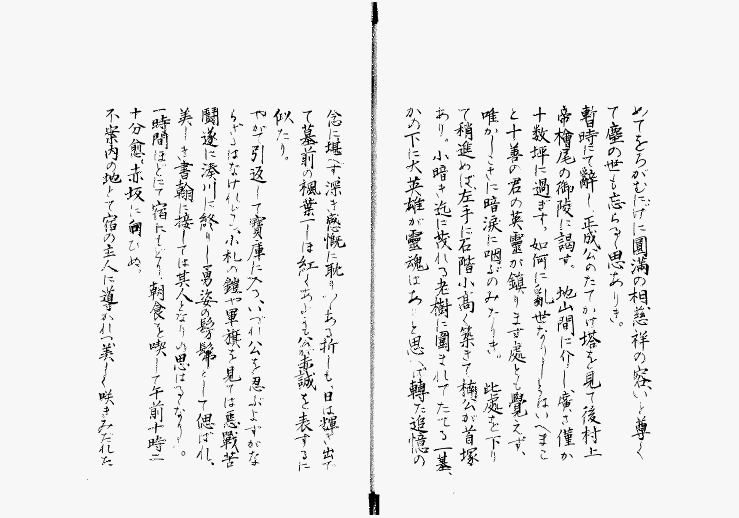 めてをろがむにげに圓滿の相慈祥の容いと尊く
て塵の世も忘らるゝ思ありき。
暫時にて辭し正成公のたてかけ塔を見て後村上
帝檜尾の御陵に謁す。地山間に介し廣さ僅か
十數坪に過ぎず。如何に亂世なりしとはいへまこ
と十善の君の英靈が鎭ります處とも覺えず、
唯かしこさに暗淚に咽ぶのみなりき。此處を下り
て稍進めば左手に石階小高く築きて楠公が首塚
あり。小暗き迄に茂れる老樹に圍まれてたてる一基、
かの下に大英雄が靈魂はありと思へば轉た追憶の
念に堪へず深き感慨に耽りつゝある折しも、日は輝き出で
て墓前の楓葉一しほ紅くあたかも公が赤誠を表するに
似たり。
やがて引返して寶庫に入る、いづれ公を忍ぶよすがな
らざるはなけれど、小札の鎧や軍旗を見ては惡戰苦
鬪遂に湊川に終りし勇姿の髣髴として偲ばれ、
美しき書翰に接しては其人となりの思はるゝなりし。
一時間ほどにて宿にもどり、朝食を喫して午前十時二
十分愈、赤坂に向ひぬ。
不案内の地とて宿の主人に導かれつ美しく咲きみだれた